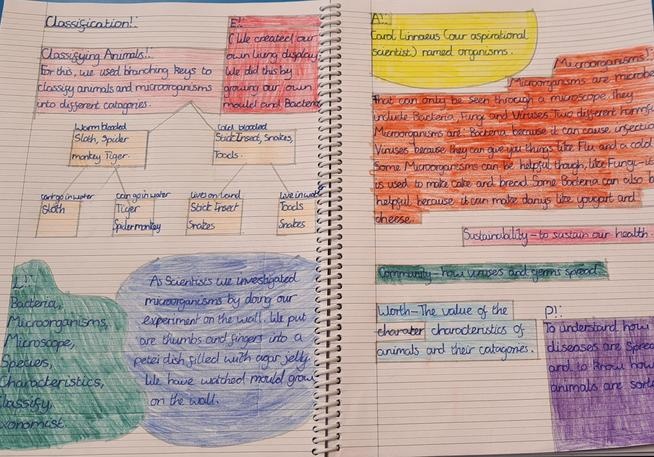 Classification!:
Classifying Animals!:
For this, we used branching keys to
classify animals and microorganisms
into different catagories.
E!:
(We created our
own living display.
We did this by
growing our own
mould and Bacteria
Warm blooded
Sloth, Spider
monkey Tiger.
Cold blooded
Stick Insect, Snakes,
Toads.
cant go in water
Sloth
can go in water
Tiger
Spider monkey
Lives on Land
Stick Insect
Snakes
Live in water
Toads
Snakes
L!:
Bacteria,
Microorganisms,
Microscope,
Species,
Characteristics,
Classify,
axonomist.
As Scientists we investigated
microorganisms by doing our
experiment on the wall. We put
are thumbs and fingers into a
petei dish filled with agar jelly.
We have watched mould grow
on the wall.
A!:
Carol Linnaeus (our aspirational
scientist) named organisms.
Microorganisms!:
Microorganisms are microbe
that can only be seen through a microscope, they
include Bacteria, Fungi and Viruses. Two different harmful
Microorganisms are: Bacteria because it can cause infection
Viruses because they can give you things like Flu and a cold
Some Microorganisms can be helpful though, like Fungi-it
is used to make cake and bread. Some Bacteria can also b
helpful because it can make danys like yougart and
cheese.
Sustainability-to sustain our health.
Community-how viruses and germs spread.
Worth-The value of the
charater characteristics of
animals and their catagories.
P!:
To understand how
diseases are sprea
and to know how
animals are sorte